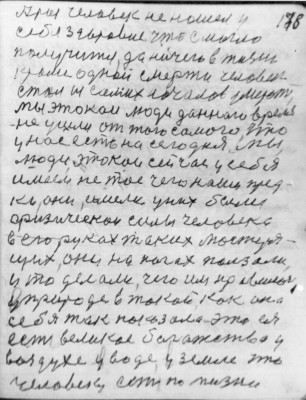 176
При человек не нашел у
себя здоровие что смогло
получится да ничего в жизни
кроме одной смерти человек
стал и самих началов умерт
мы это как люди данного время
не ушли от того самого, что
у нас есть на сегодня, мы
люди это как сейчас у себя
имеем не то чего наши пред
ки, они, имели у них были
физической силы человека
в его руках таких мостуря-
щих, они на ногах ползали
и то делали, чего им
природе в такой как она
себя так показала это ея
есть великое багажства у
воздухе у воде, у земле это
человеку есть по жизни